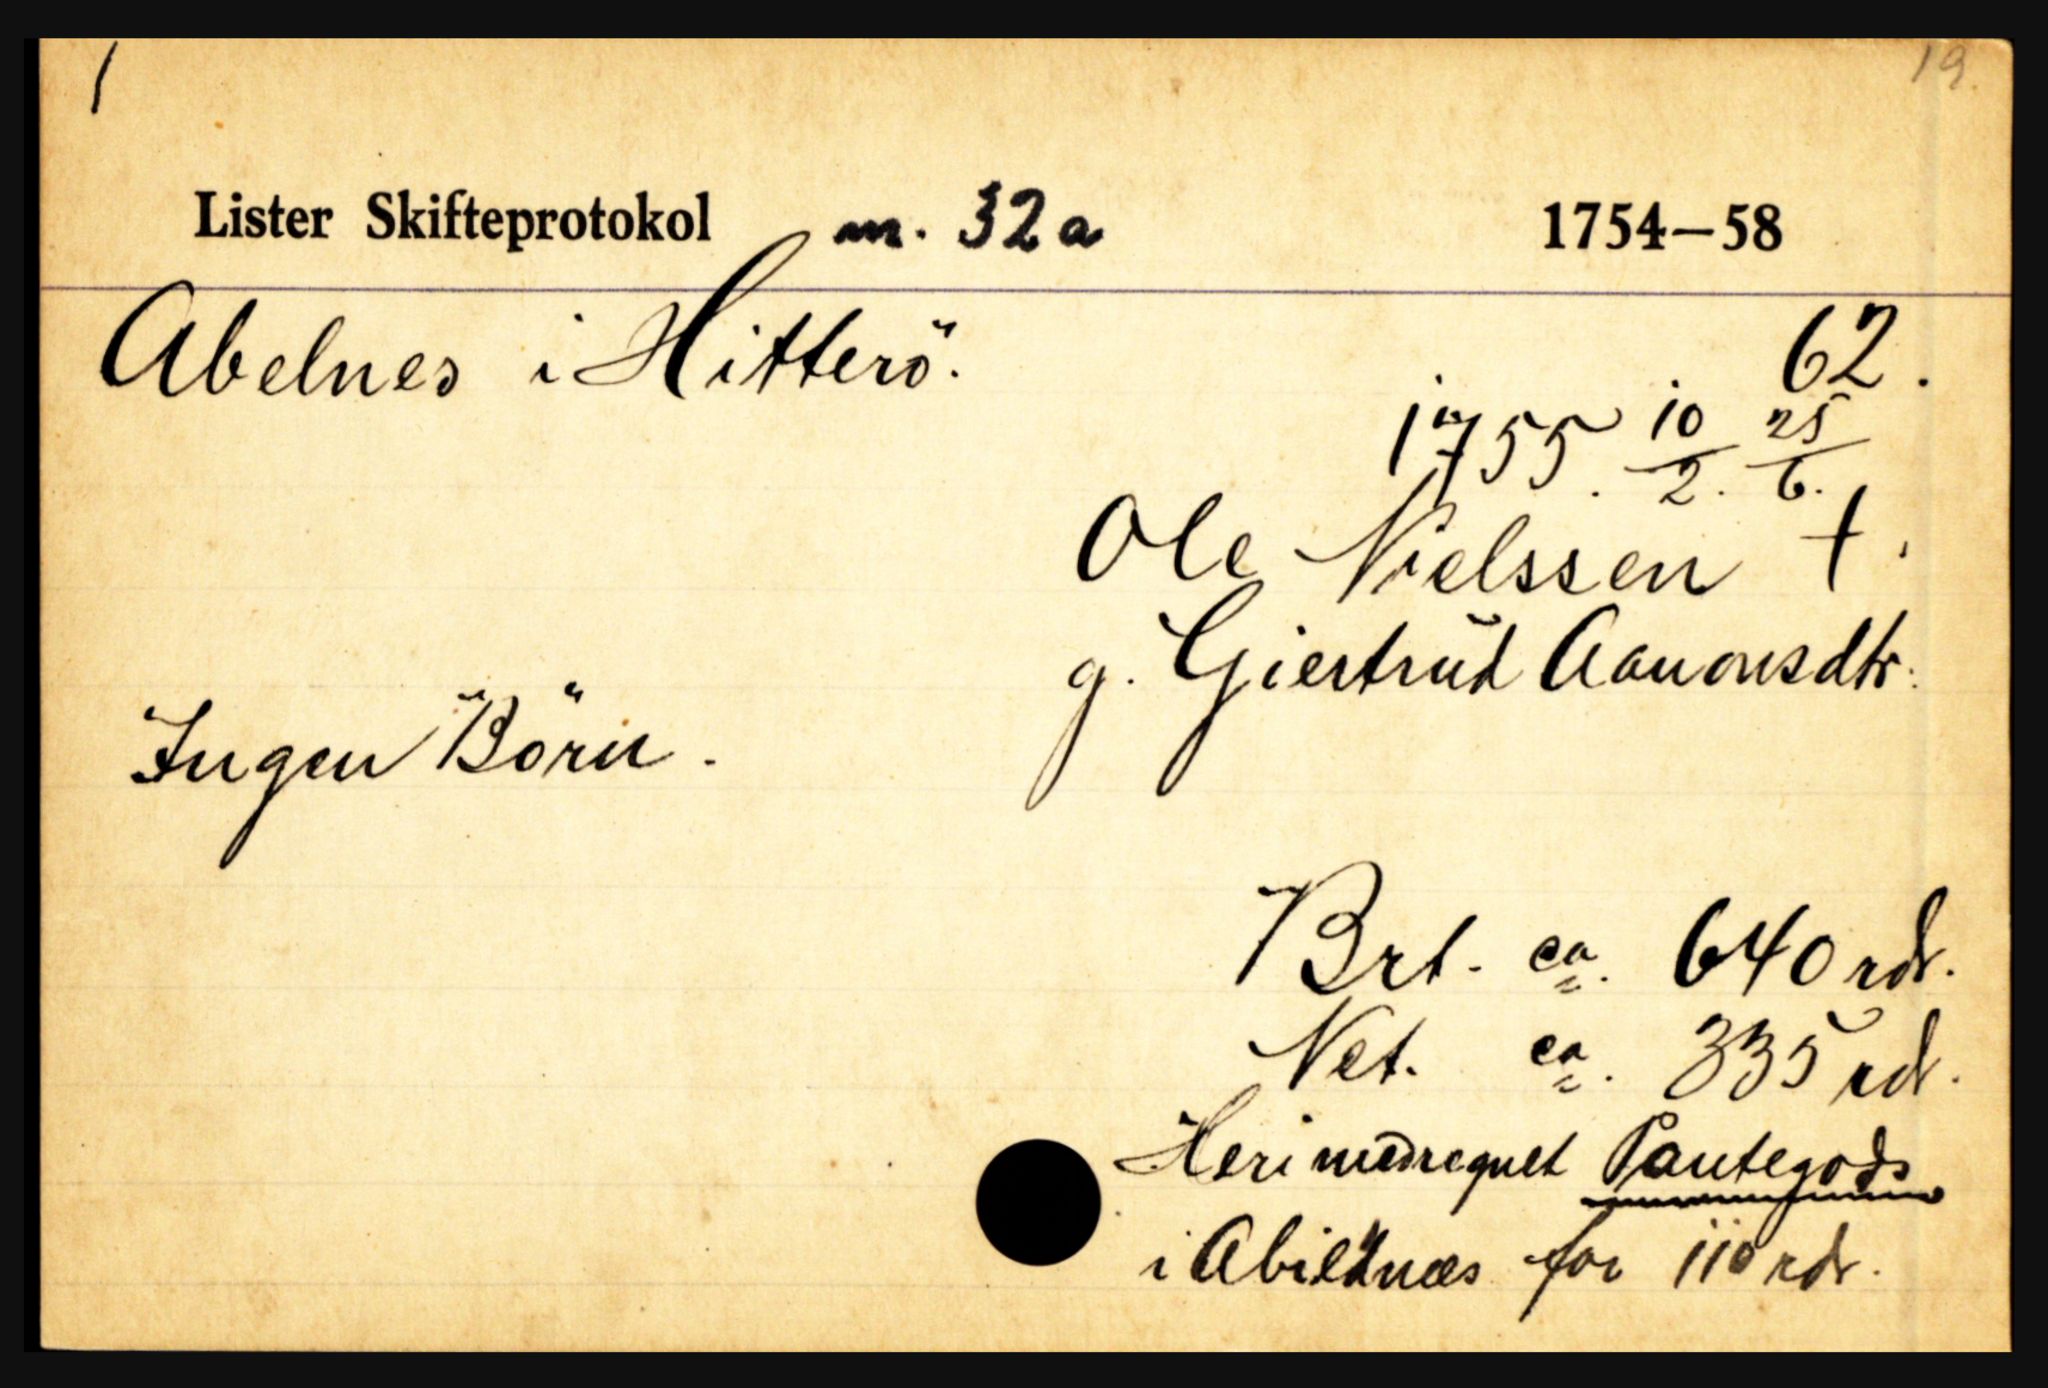 1 19.
Lister Skifteprotokol nr. 32a 1754—58
Abelnes i Hitterö. 62.
1755. 10/2. 25/6.
Ole Nielssen †.
g. Giertrud Aanonsdtr.
Ingen Börn.
Brt. ca. 640 rdr.
Net. ca. 335 rdr.
Heri medregnet Pantegods
i Abildnæs for 110 rdr.